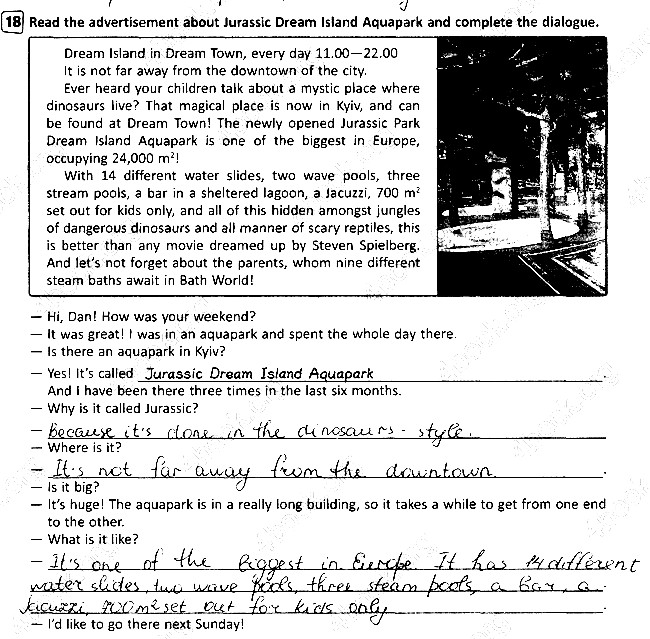 18 Read the advertisement about Jurassic Dream Island Aquapark and complete the dialogue.
Dream Island in Dream Town, every day 11.00—22.00
It is not far away from the downtown of the city.
Ever heard your children talk about a mystic place where
dinosaurs live? That magical place is now in Kyiv, and can
be found at Dream Town! The newly opened Jurassic Park
Dream Island Aquapark is one of the biggest in Europe,
occupying 24,000 m²!
With 14 different water slides, two wave pools, three
stream pools, a bar in a sheltered lagoon, a Jacuzzi, 700 m²
set out for kids only, and all of this hidden amongst jungles
of dangerous dinosaurs and all manner of scary reptiles, this
is better than any movie dreamed up by Steven Spielberg.
And let's not forget about the parents, whom nine different
steam baths await in Bath World!
— Hi, Dan! How was your weekend?
— It was great! I was in an aquapark and spent the whole day there.
— Is there an aquapark in Kyiv?
— Yes! It's called Jurassic Dream Island Aquapark.
And I have been there three times in the last six months.
— Why is it called Jurassic?
— Because it's done in the dinosaurs - style.
— Where is it?
— It's not far away from the downtown.
— Is it big?
— It's huge! The aquapark is in a really long building, so it takes a while to get from one end
to the other.
— What is it like?
— It's one of the biggest in Europe. It has 14 different
water slides, two wave pools, three steam pools, a bar, a
Jacuzzi, 700 m² set out for kids only.
— I'd like to go there next Sunday!